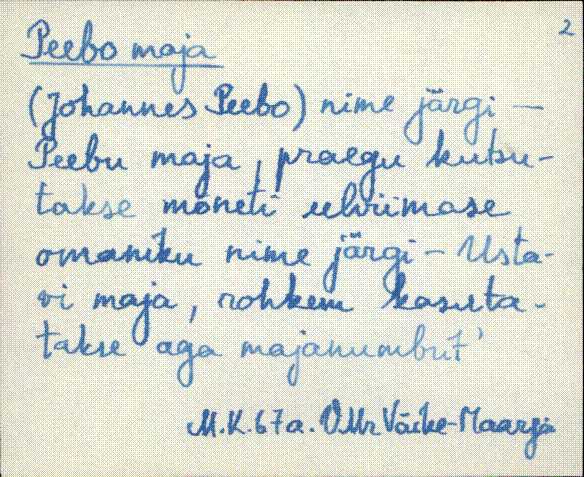 2
Peebo maja
(Johannes Peebo) nime järgi —
Peebu maja, praegu kutsu-
takse mõneti ulviimase
omaniku nime järgi - Usta-
vi maja, rohkem kasuta-
takse aga majanumbrit'
M.K. 67a. VMr Väike-Maarja